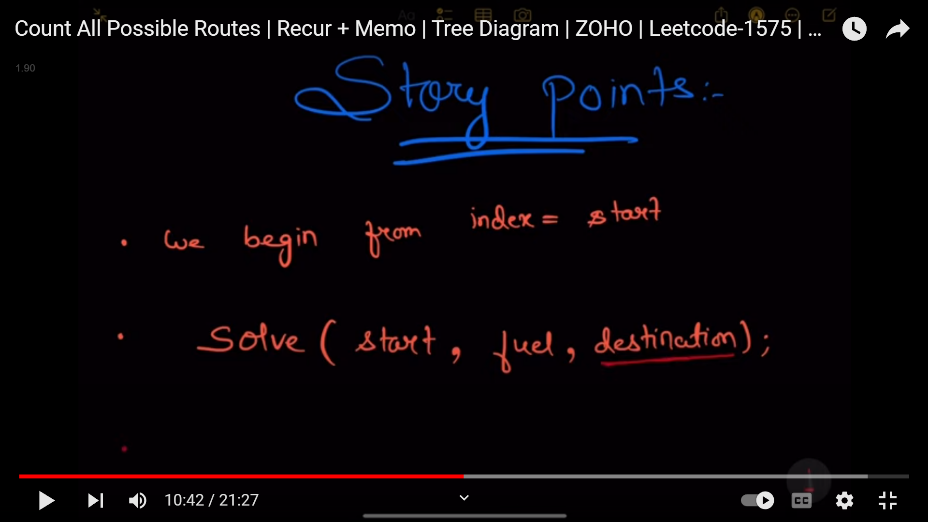 Count All Possible Routes | Recur + Memo | Tree Diagram | ZOHO | Leetcode-1575 | ...
1.90
Story points:-
• we begin from index = start
• Solve ( start, fuel, destination);
•
10:42 / 21:27
CC